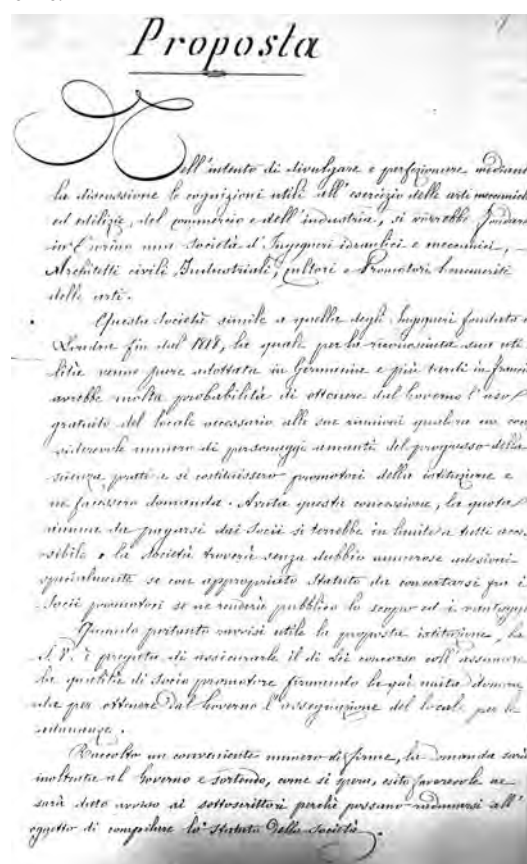 Proposta
Nell'intento di divulgare e perfezionare mediante
la discussione le cognizioni utili all'esercizio delle arti meccaniche
ed edilizie, del commercio e dell'industria, si vorrebbe fondare
in Torino una Società d'Ingegneri idraulici e meccanici,
Architetti civili, Industriali, cultori e Promotori benemeriti
delle arti.
Questa Società simile a quella degli Ingegneri fondata a
Londra fin dal 1818, la quale per la riconosciuta sua uti
lità venne pure adottata in Germania e più tardi in Francia
avrebbe molta probabilità di ottenere dal Governo l'uso
gratuito del locale necessario alle sue riunioni qualora un con
siderevole numero di personaggi amanti del progresso della
scienza pratica si costituissero promotori della istituzione e
ne facessero domanda. Avuta questa concessione, la quota
annua da pagarsi dai Socii si terrebbe in limite a tutti acces
sibile e la Società troverà senza dubbio numerose adesioni
specialmente se con appropriato Statuto da concertarsi fra i
Socii promotori se ne renderà pubblico lo scopo ed i vantaggi.
Quando pertanto ravvisi utile la proposta istituzione, la
S. V. è pregata di assicurarle il di Lei concorso coll'assumere
la qualità di Socio promotore firmando la qui unita doman
da per ottenere dal Governo l'assegnazione del locale per le
adunanze.
Raccolto un conveniente numero di firme, la domanda sarà
inoltrata al Governo e sortendo, come si spera, esito favorevole ne
sarà dato avviso ai sottoscrittori perchè possano radunarsi all'
oggetto di compilare lo Statuto della Società.